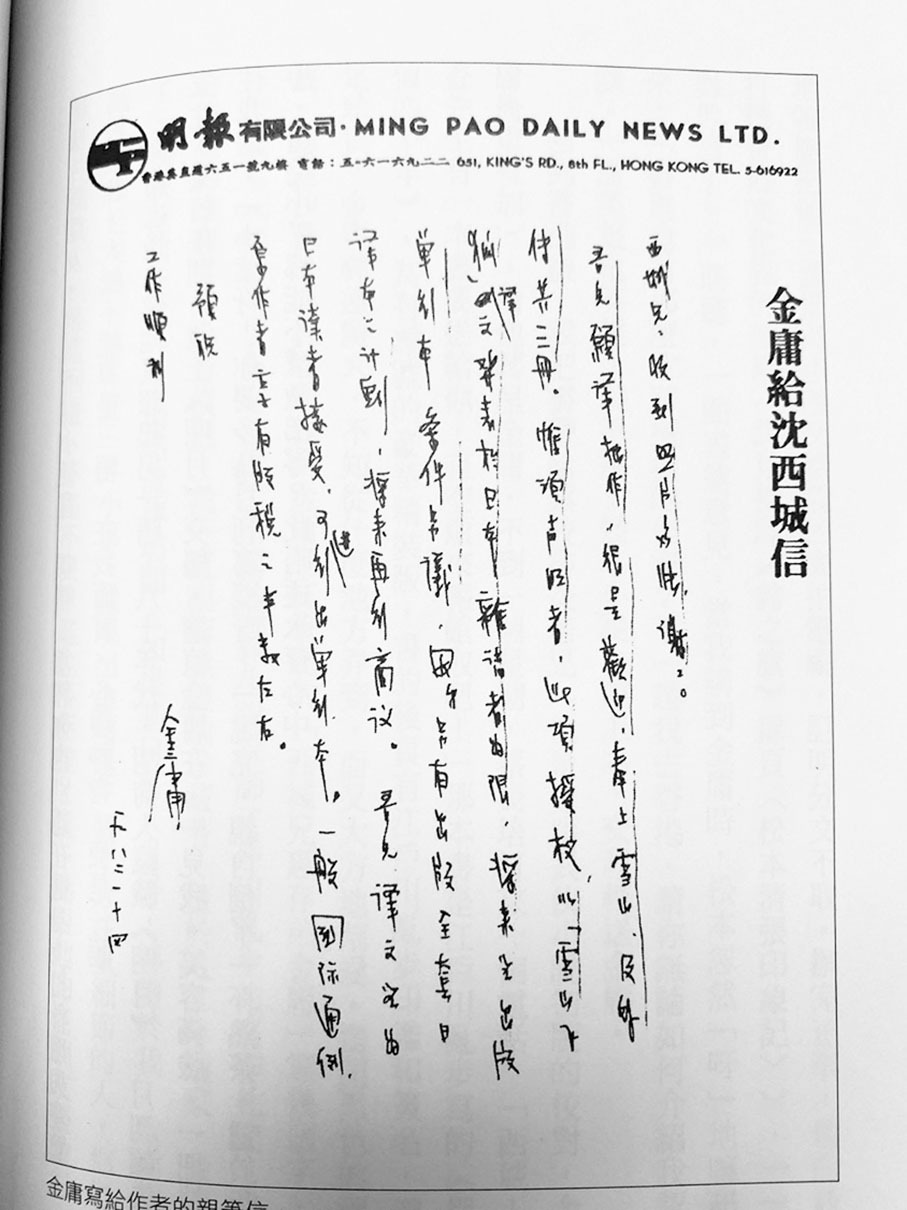 明報有限公司·MING PAO DAILY NEWS LTD.
香港英皇道六五一號九樓 電話：五·六一六九二二 651, KING'S RD., 8th FL., HONG KONG TEL. 5-616922
金庸給沈西城信
西城兄：收到四月大札，謝謝。
吾兄願译拙作，很是歡迎，奉上雪山、及外
傳共三冊。惟須声明者，此項授权，以「雪山飞
狐」译文發表於日本雜誌者為限，將來如出版
單行本 条件另議，因另有出版全套日
译本之计劃，將来再行商议。吾兄译文如由
日本读者接受，可進行出單行本。一般国际通例，
原作者享有版税之半数左右。
預祝
工作順利
金庸
一九八二一十四
金庸寫給作者的親筆信